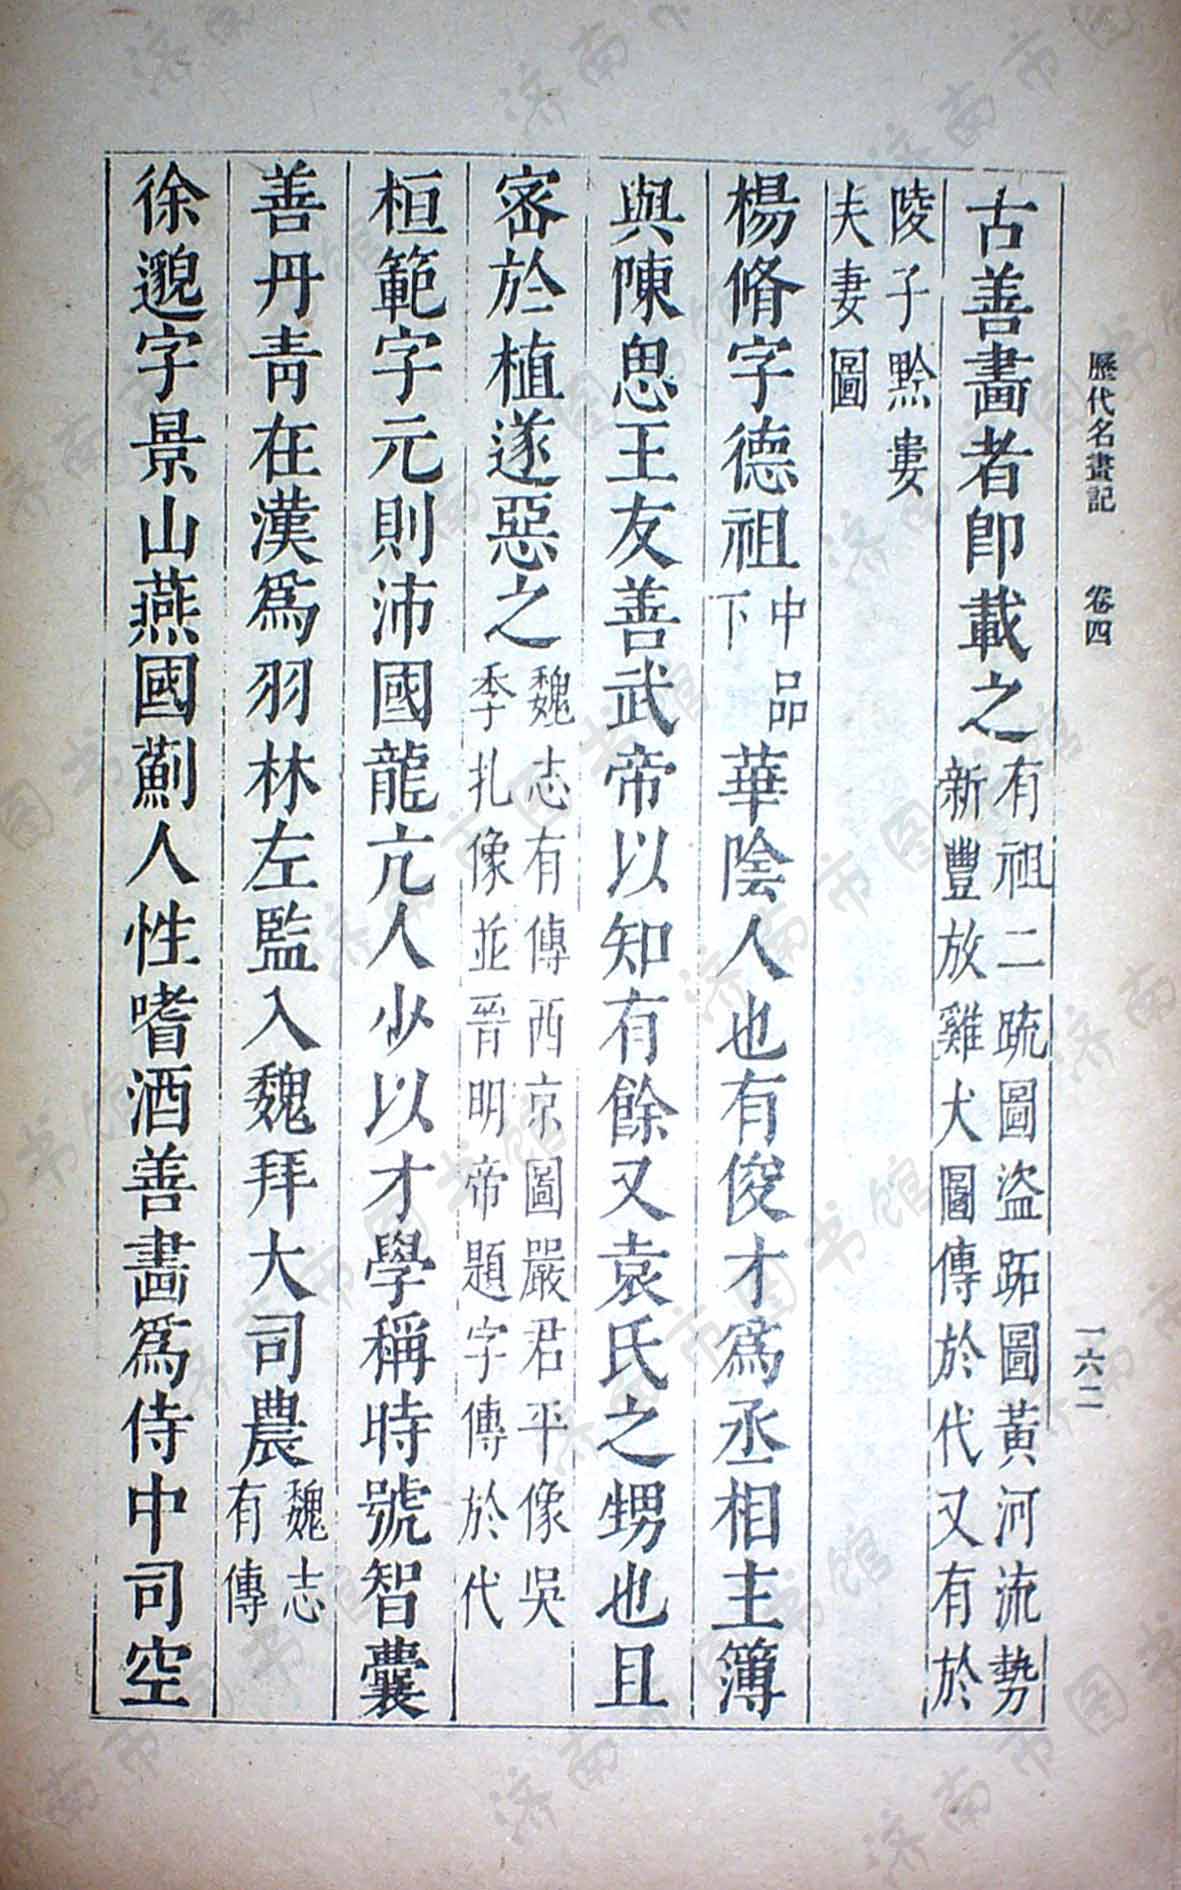 歷代名畫記　卷四　一六二
古善畫者卽載之有祖二疏圖盜跖圖黃河流勢
新豐放雞犬圖傳於代又有於
陵子黔婁
夫妻圖
楊脩字德祖中品
下華陰人也有俊才爲丞相主簿
與陳思王友善武帝以知有餘又袁氏之甥也且
密於植遂惡之魏志有傳西京圖嚴君平像吳
季扎像並晉明帝題字傳於代
桓範字元則沛國龍亢人少以才學稱時號智囊
善丹青在漢爲羽林左監入魏拜大司農魏志
有傳
徐邈字景山燕國薊人性嗜酒善畫爲侍中司空
济南市图书馆